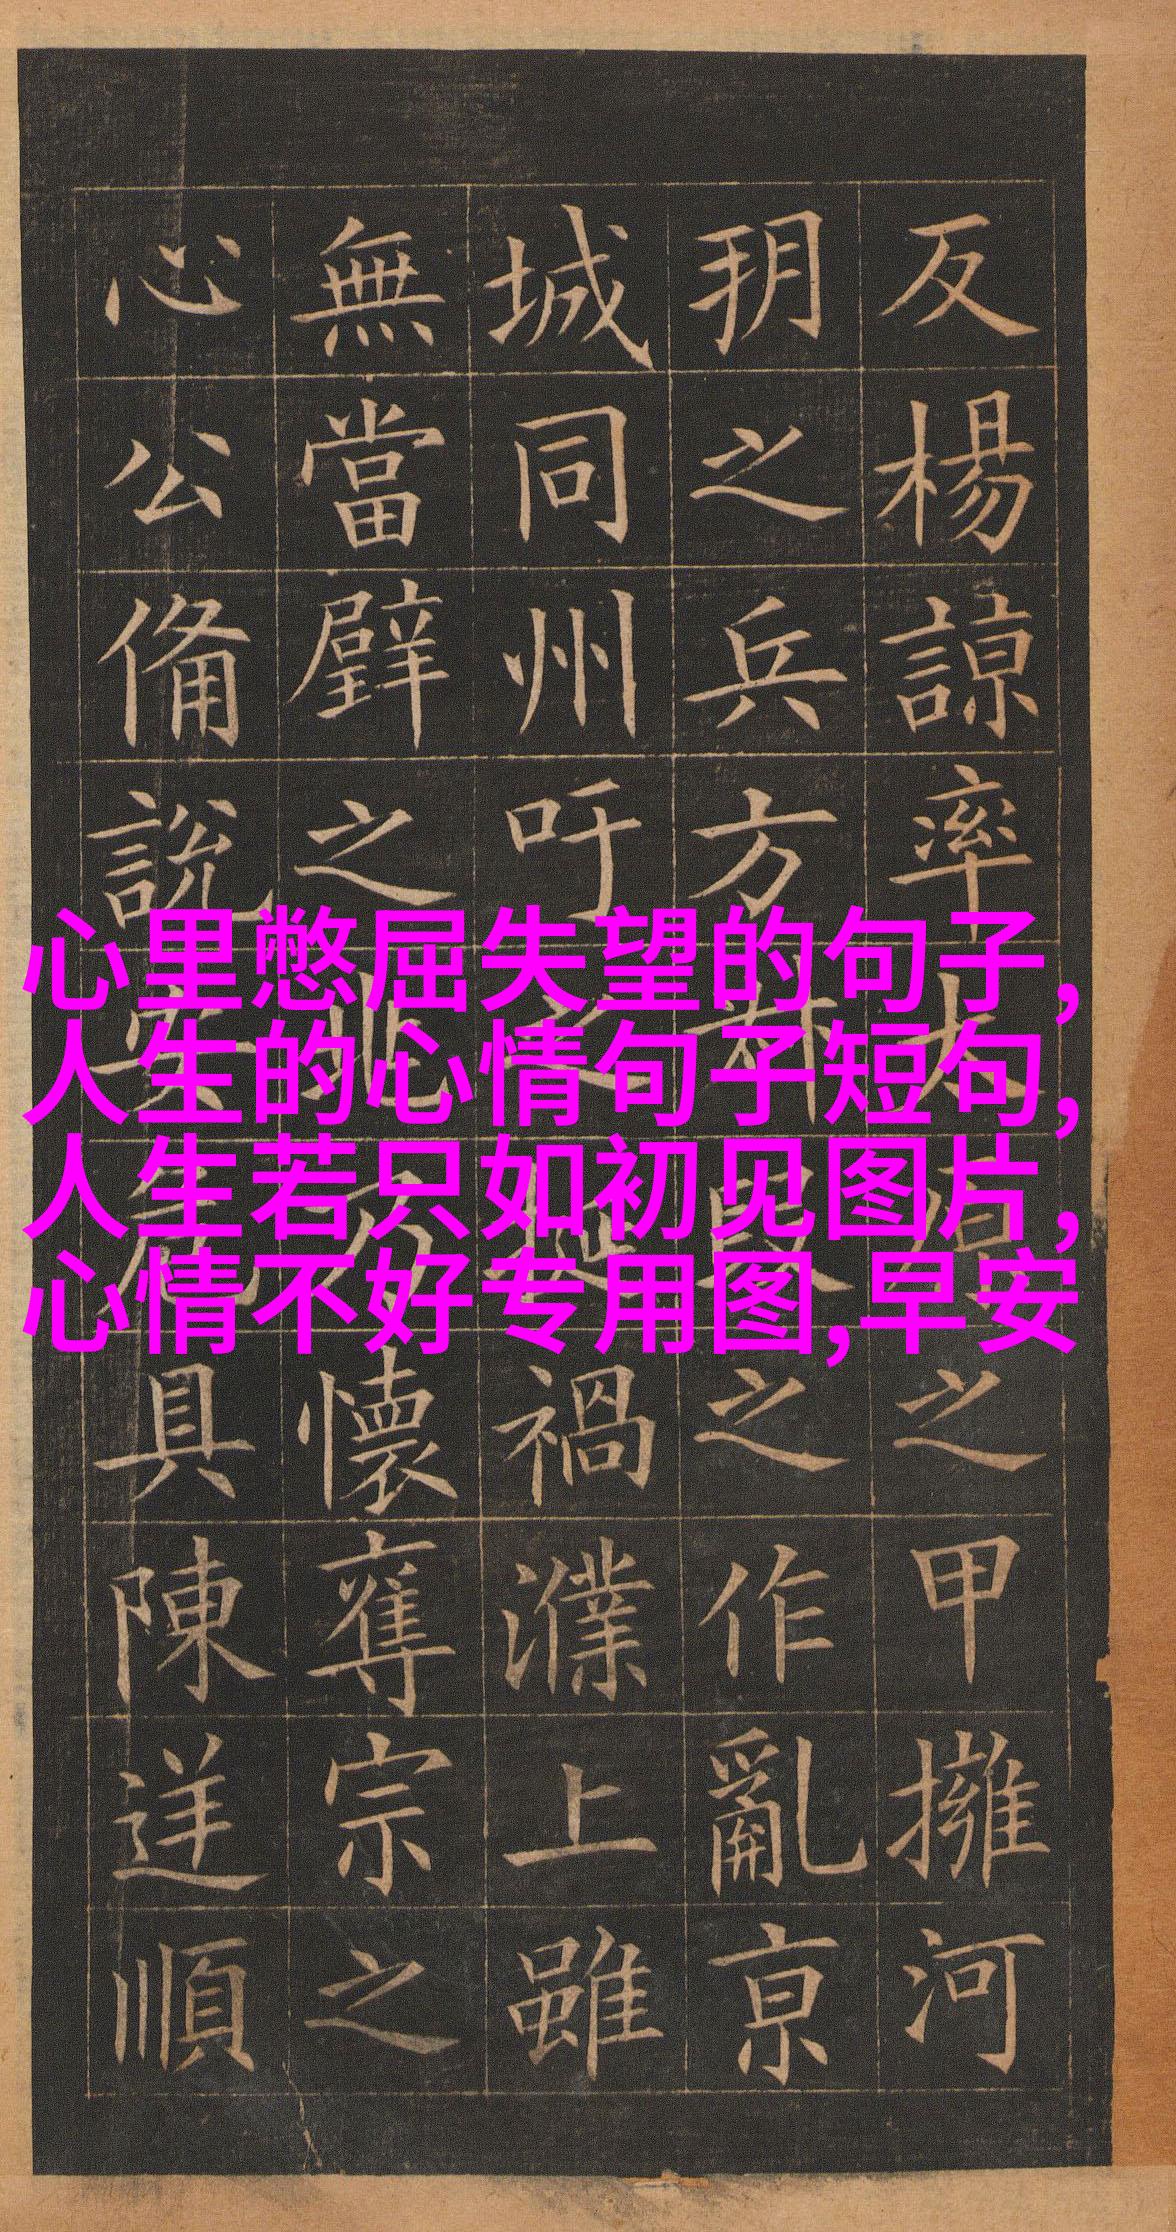 及楊諒率太原之甲擁河
朔之兵方叔段之作亂京
城同州吁之挻禍濮上雖
無當璧之兆乃懷奪宗之
心公備說安危具陳逆順
心里憋屈失望的句子,
人生的心情句子短句,
人生若只如初见图片,
心情不好专用图,早安